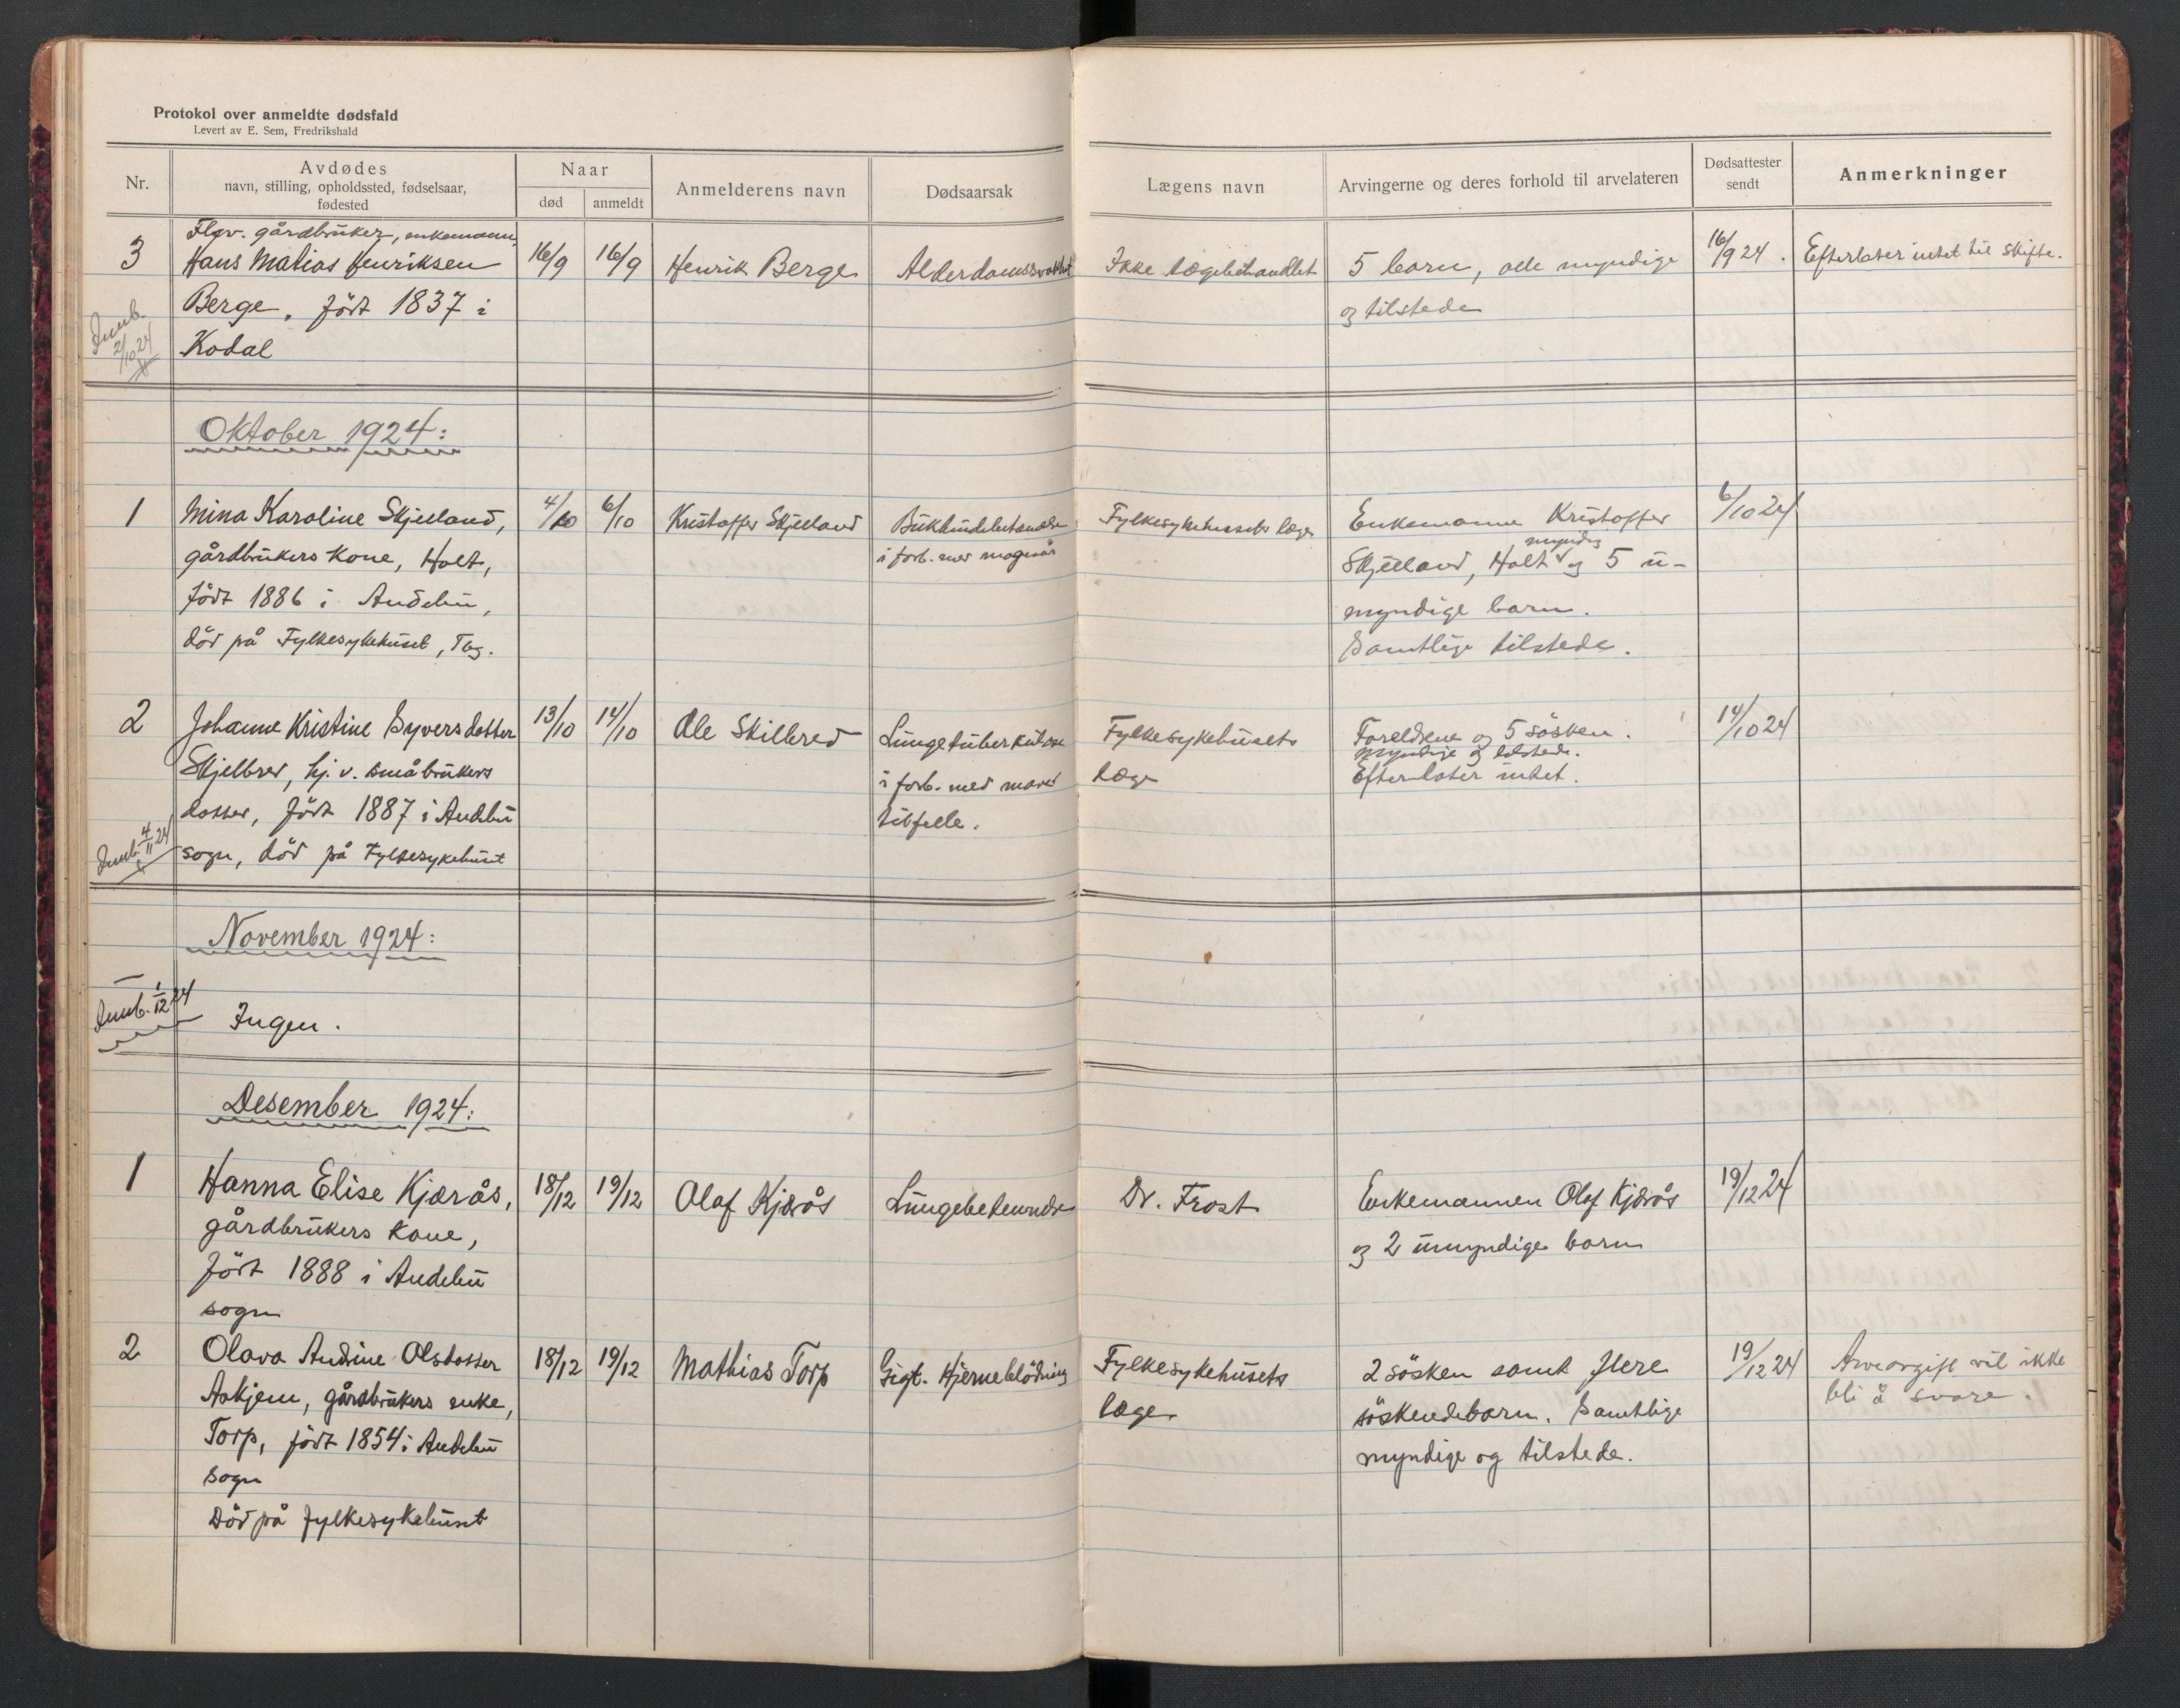 Protokol over anmeldte dødsfald
Levert av E. Sem, Fredrikshald
Nr.
Avdødes
navn, stilling, opholdssted, fødselsaar,
fødested
Naar
død
anmeldt
Anmelderens navn
Dødsaarsak
Lægens navn
Arvingerne og deres forhold til arvelateren
Dødsattester
sendt
Anmerkninger
3
Flgv. gårdbruker, enkemann,
Hans Matias Henriksen
Berge, født 1837 i
Kodal
16/9
16/9
Henrik Berge
Alderdomssvakhet
Ikke lægebehandlet
5 barn, alle myndige
og tilstede
16/9 24.
Efterlater intet til skifte.
2/10 24
Oktober 1924:
1
Mina Karoline Skjelland,
gårdbrukers kone, Holt,
født 1886 i Andebu,
död på Fylkesykehuset, Tbg.
4/10
6/10
Kristoffer Skjelland
Bukhindebetændelse
i forb. med magesår
Fylkesykehusets læge
Enkemann Kristoffer
Skjelland, Holt myndig og 5 u-
myndige barn.
Samtlige tilstede.
6/10 24
2
Johanne Kristine Syversdatter
Skjelbred, hj. v. småbrukers
datter, født 1887 i Andebu
sogn, död på Fylkesykehuset
13/10
14/10
Ole Skilbred
Lungetuberkulose
i forb. med
tilfelle.
Fylkesykehusets
læge
Foreldrene og 5 søsken.
Myndige og tilstede.
Efterlater intet.
14/10 24
4/11 24
November 1924:
1/12 24
Ingen.
Desember 1924:
1
Hanna Elise Kjærås,
gårdbrukers kone,
født 1888 i Andebu
sogn
18/12
19/12
Olaf Kjærås
Lungebetennelse
Dr. Frost
Enkemannen Olaf Kjærås
og 2 umyndige barn
19/12 24
2
Olava Andrine Olsdatter
Askjem, gårdbrukers enke,
Torp, født 1854 i Andebu
sogn
Död på fylkesykehuset
18/12
19/12
Mathias Torp
Gigt. Hjerneblödning
Fylkesykehusets
læge.
2 søsken samt flere
søskendebarn. Samtlige
myndige og tilstede.
19/12 24
Arveavgift vil ikke
bli å svare.